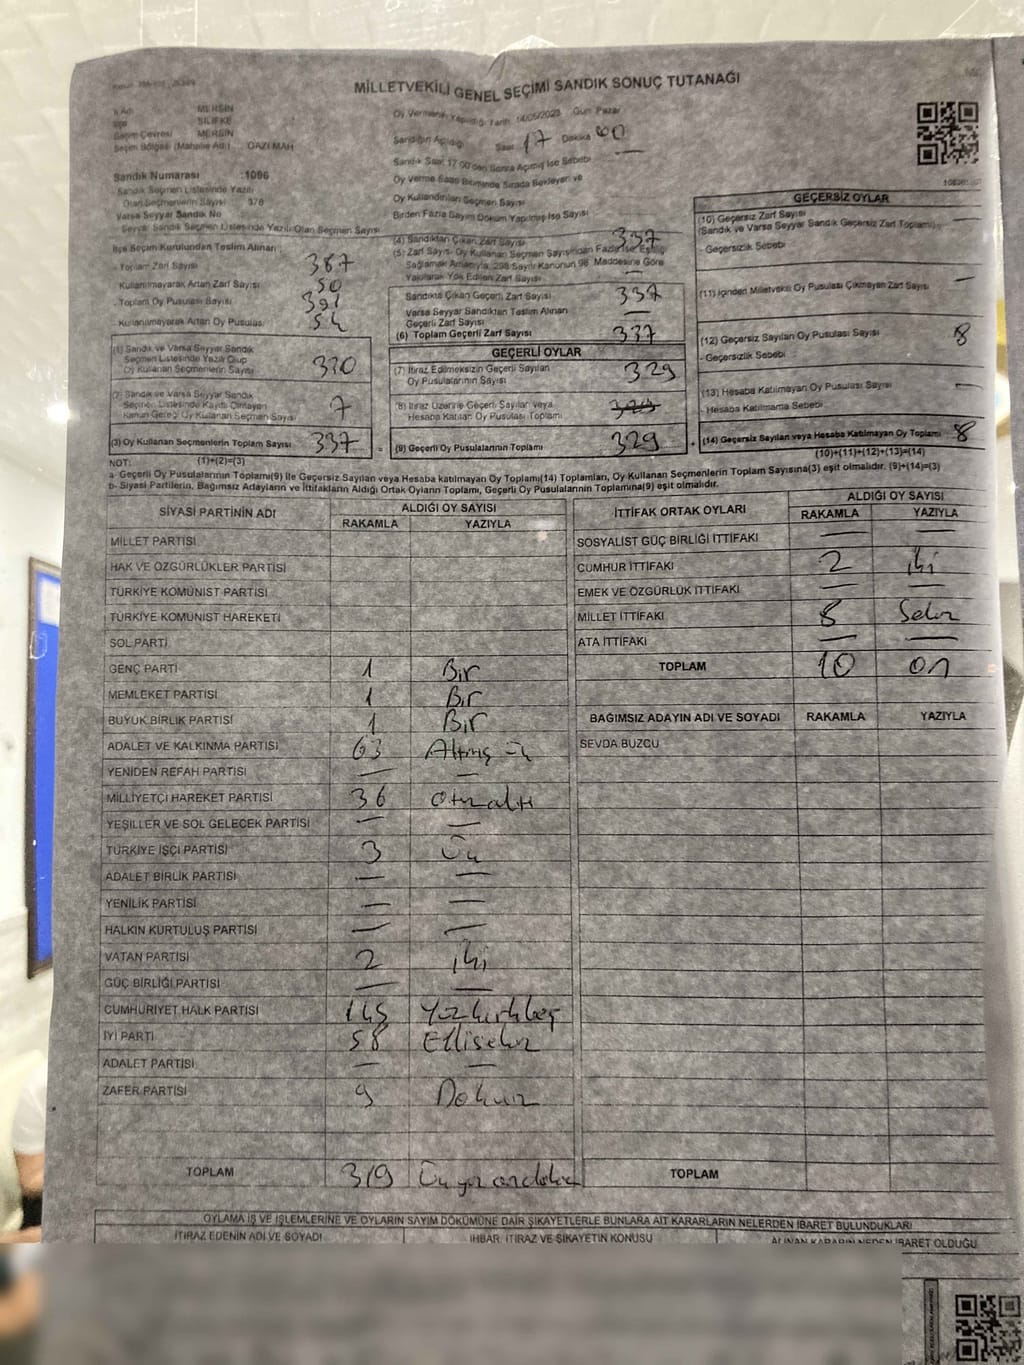 MİLLETVEKİLİ GENEL SEÇİMİ SANDIK SONUÇ TUTANAĞI
İl Adı MERSİN
İlçe SİLİFKE
Seçim Çevresi MERSİN
Seçim Bölgesi (Mahalle Adı) GAZİ MAH
Sandık Numarası :1096
Sandık Seçmen Listesinde Yazılı
Olan Seçmenlerin Sayısı 378
Varsa Seyyar Sandık No
Seyyar Sandık Seçmen Listesinde Yazılı Olan Seçmen Sayısı
Oy Vermenin Yapıldığı Tarih 14/05/2023 Gün Pazar
Sandığın Açıldığı Saat 17 Dakika 00
Sandık Saat 17:00'den Sonra Açılmış İse Sebebi —
Oy Verme Saati Bitiminde Sırada Bekleyen ve
Oy Kullandırılan Seçmen Sayısı
Birden Fazla Sayım Döküm Yapılmış İse Sayısı
İlçe Seçim Kurulundan Teslim Alınan
- Toplam Zarf Sayısı 387
Kullanılmayarak Artan Zarf Sayısı 50
- Toplam Oy Pusulası Sayısı 391
- Kullanılmayarak Artan Oy Pusulası 54
(1) Sandık ve Varsa Seyyar Sandık
Seçmen Listesinde Yazılı Olup
Oy Kullanan Seçmenlerin Sayısı 330
(2) Sandık ve Varsa Seyyar Sandık
Seçmen Listesinde Kaydı Olmayan
Kanun Gereği Oy Kullanan Seçmen Sayısı 7
(3) Oy Kullanan Seçmenlerin Toplam Sayısı 337
(4) Sandıktan Çıkan Zarf Sayısı 337
(5) Zarf Sayısı Oy Kullanan Seçmen Sayısından Fazla İse Eşitliği
Sağlamak Amacıyla, 298 Sayılı Kanunun 98. Maddesine Göre
Yakılarak Yok Edilen Zarf Sayısı —
Sandıkta Çıkan Geçerli Zarf Sayısı 337
Varsa Seyyar Sandıktan Teslim Alınan
Geçerli Zarf Sayısı —
(6) Toplam Geçerli Zarf Sayısı 337
GEÇERLİ OYLAR
(7) İtiraz Edilmeksizin Geçerli Sayılan
Oy Pusulalarının Sayısı 329
(8) İtiraz Üzerine Geçerli Sayılan veya
Hesaba Katılan Oy Pusulası Toplamı
(9) Geçerli Oy Pusulalarının Toplamı 329
GEÇERSİZ OYLAR
(10) Geçersiz Zarf Sayısı —
(Sandık ve Varsa Seyyar Sandık Geçersiz Zarf Toplamı)
- Geçersizlik Sebebi
(11) İçinden Milletvekili Oy Pusulası Çıkmayan Zarf Sayısı —
(12) Geçersiz Sayılan Oy Pusulası Sayısı 8
- Geçersizlik Sebebi
(13) Hesaba Katılmayan Oy Pusulası Sayısı —
- Hesaba Katılmama Sebebi
(14) Geçersiz Sayılan veya Hesaba Katılmayan Oy Toplamı 8
(10)+(11)+(12)+(13)=(14)
NOT: (1)+(2)=(3)
a- Geçerli Oy Pusulalarının Toplamı(9) ile Geçersiz Sayılan veya Hesaba katılmayan Oy Toplamı(14) Toplamları, Oy Kullanan Seçmenlerin Toplam Sayısına(3) eşit olmalıdır. (9)+(14)=(3)
b- Siyasi Partilerin, Bağımsız Adayların ve İttifakların Aldığı Ortak Oyların Toplamı, Geçerli Oy Pusulalarının Toplamına(9) eşit olmalıdır.
SİYASİ PARTİNİN ADI ALDIĞI OY SAYISI
RAKAMLA YAZIYLA
MİLLET PARTİSİ
HAK VE ÖZGÜRLÜKLER PARTİSİ
TÜRKİYE KOMÜNİST PARTİSİ
TÜRKİYE KOMÜNİST HAREKETİ
SOL PARTİ
GENÇ PARTİ 1 Bir
MEMLEKET PARTİSİ 1 Bir
BÜYÜK BİRLİK PARTİSİ 1 Bir
ADALET VE KALKINMA PARTİSİ 63 Altmış üç
YENİDEN REFAH PARTİSİ — —
MİLLİYETÇİ HAREKET PARTİSİ 36 otuzaltı
YEŞİLLER VE SOL GELECEK PARTİSİ — —
TÜRKİYE İŞÇİ PARTİSİ 3 Üç
ADALET BİRLİK PARTİSİ — —
YENİLİK PARTİSİ — —
HALKIN KURTULUŞ PARTİSİ — —
VATAN PARTİSİ 2 iki
GÜÇ BİRLİĞİ PARTİSİ — —
CUMHURİYET HALK PARTİSİ 145 Yüzkırkbeş
İYİ PARTİ 58 Ellisekiz
ADALET PARTİSİ — —
ZAFER PARTİSİ 9 Dokuz
TOPLAM 319 Üçyüz ondokuz
İTTİFAK ORTAK OYLARI ALDIĞI OY SAYISI
RAKAMLA YAZIYLA
SOSYALİST GÜÇ BİRLİĞİ İTTİFAKI — —
CUMHUR İTTİFAKI 2 iki
EMEK VE ÖZGÜRLÜK İTTİFAKI — —
MİLLET İTTİFAKI 8 Sekiz
ATA İTTİFAKI — —
TOPLAM 10 on
BAĞIMSIZ ADAYIN ADI VE SOYADI RAKAMLA YAZIYLA
SEVDA BUZCU
TOPLAM
OYLAMA İŞ VE İŞLEMLERİNE VE OYLARIN SAYIM DÖKÜMÜNE DAİR ŞİKAYETLERLE BUNLARA AİT KARARLARIN NELERDEN İBARET BULUNDUKLARI
İTİRAZ EDENİN ADI VE SOYADI İHBAR, İTİRAZ VE ŞİKAYETİN KONUSU ALINAN KARARIN NEDEN İBARET OLDUĞU